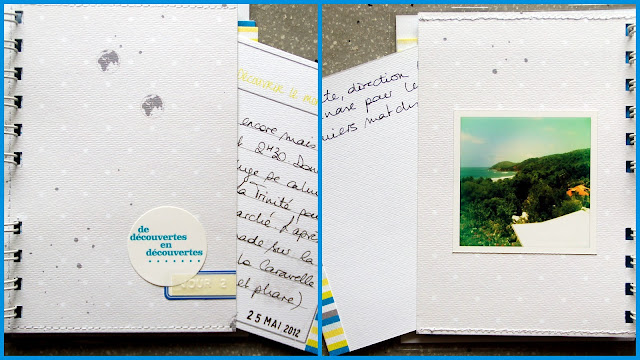 de
découvertes
en
découvertes
JOUR 2
Découvrir le mon
encore mais
2H30. Don
la Trinité pou
marché. L'après
ade sur la
la Caravelle
et phare)
25 MAI 2012
te, direction
pour le
miers matchs